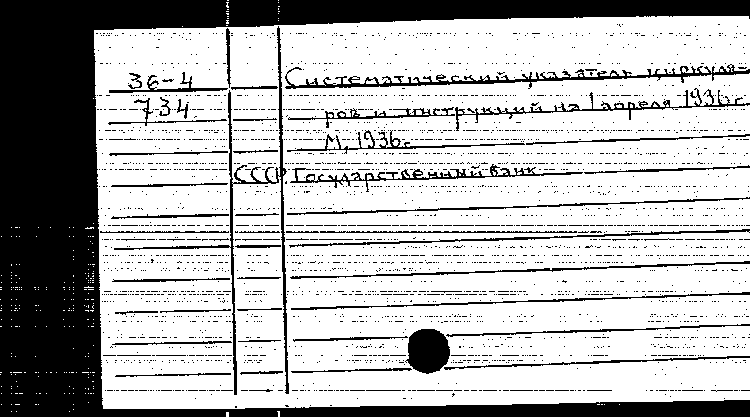 36-4 Систематический указатель циркуля-
734 ров и инструкций на 1 апреля 1936г.
М, 1936г.
СССР. Государственный банк.